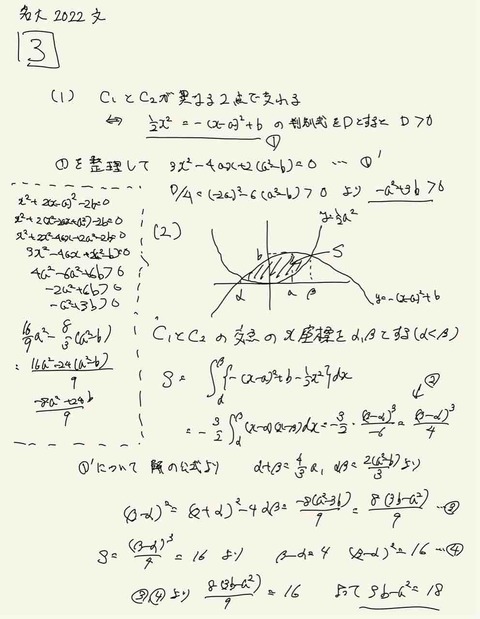 名大 2022 文
3
(1) C₁とC₂が異なる2点で交わる
⇔ ½x² = -(x-a)²+b の判別式をDとすると D>0
①
①を整理して 3x²-4ax+2(a²-b)=0 … ①'
D/4=(-2a)²-6(a²-b)>0 より -a²+3b>0
x²+2(x-a)²-2b=0
x²+2(x²-2ax+a²)-2b=0
x²+2x²-4ax+2a²-2b=0
3x²-4ax+2a²-2b=0
4a²-6a²+6b>0
-2a²+6b>0
-a²+3b>0
16/9a²-8/3(a²-b)
= 16a²-24(a²-b)/9
-8a²+24b/9
(2)
y=½x²
b
S
α a β
y=-(x-a)²+b
C₁とC₂の交点のx座標をα,βとする(α<β)
S = ∫_α^β{-(x-a)²+b-½x²}dx
②
= -3/2∫_α^β(x-α)(x-β)dx=-3/2・(β-α)³/-6=(β-α)³/4
①'について 解の公式より α+β=4/3a, αβ=2(a²-b)/3より
(β-α)²=(β+α)²-4αβ=-8(a²-3b)/9=8(3b-a²)/9 …③
S=(β-α)³/4=16 より β-α=4 (β-α)²=16…④
③,④より 8(3b-a²)/9=16 よって 3b-a²=18